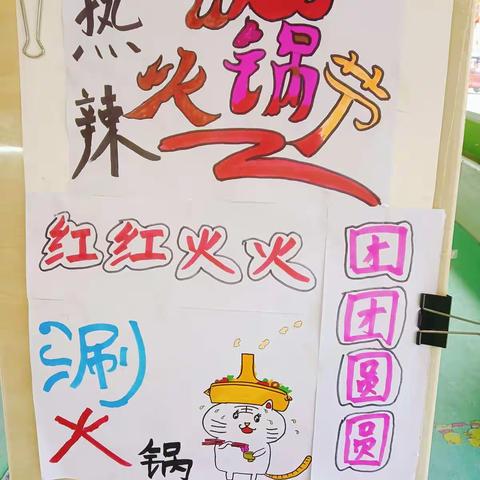 热辣
火锅节
红红火火
团团圆圆
涮
火锅